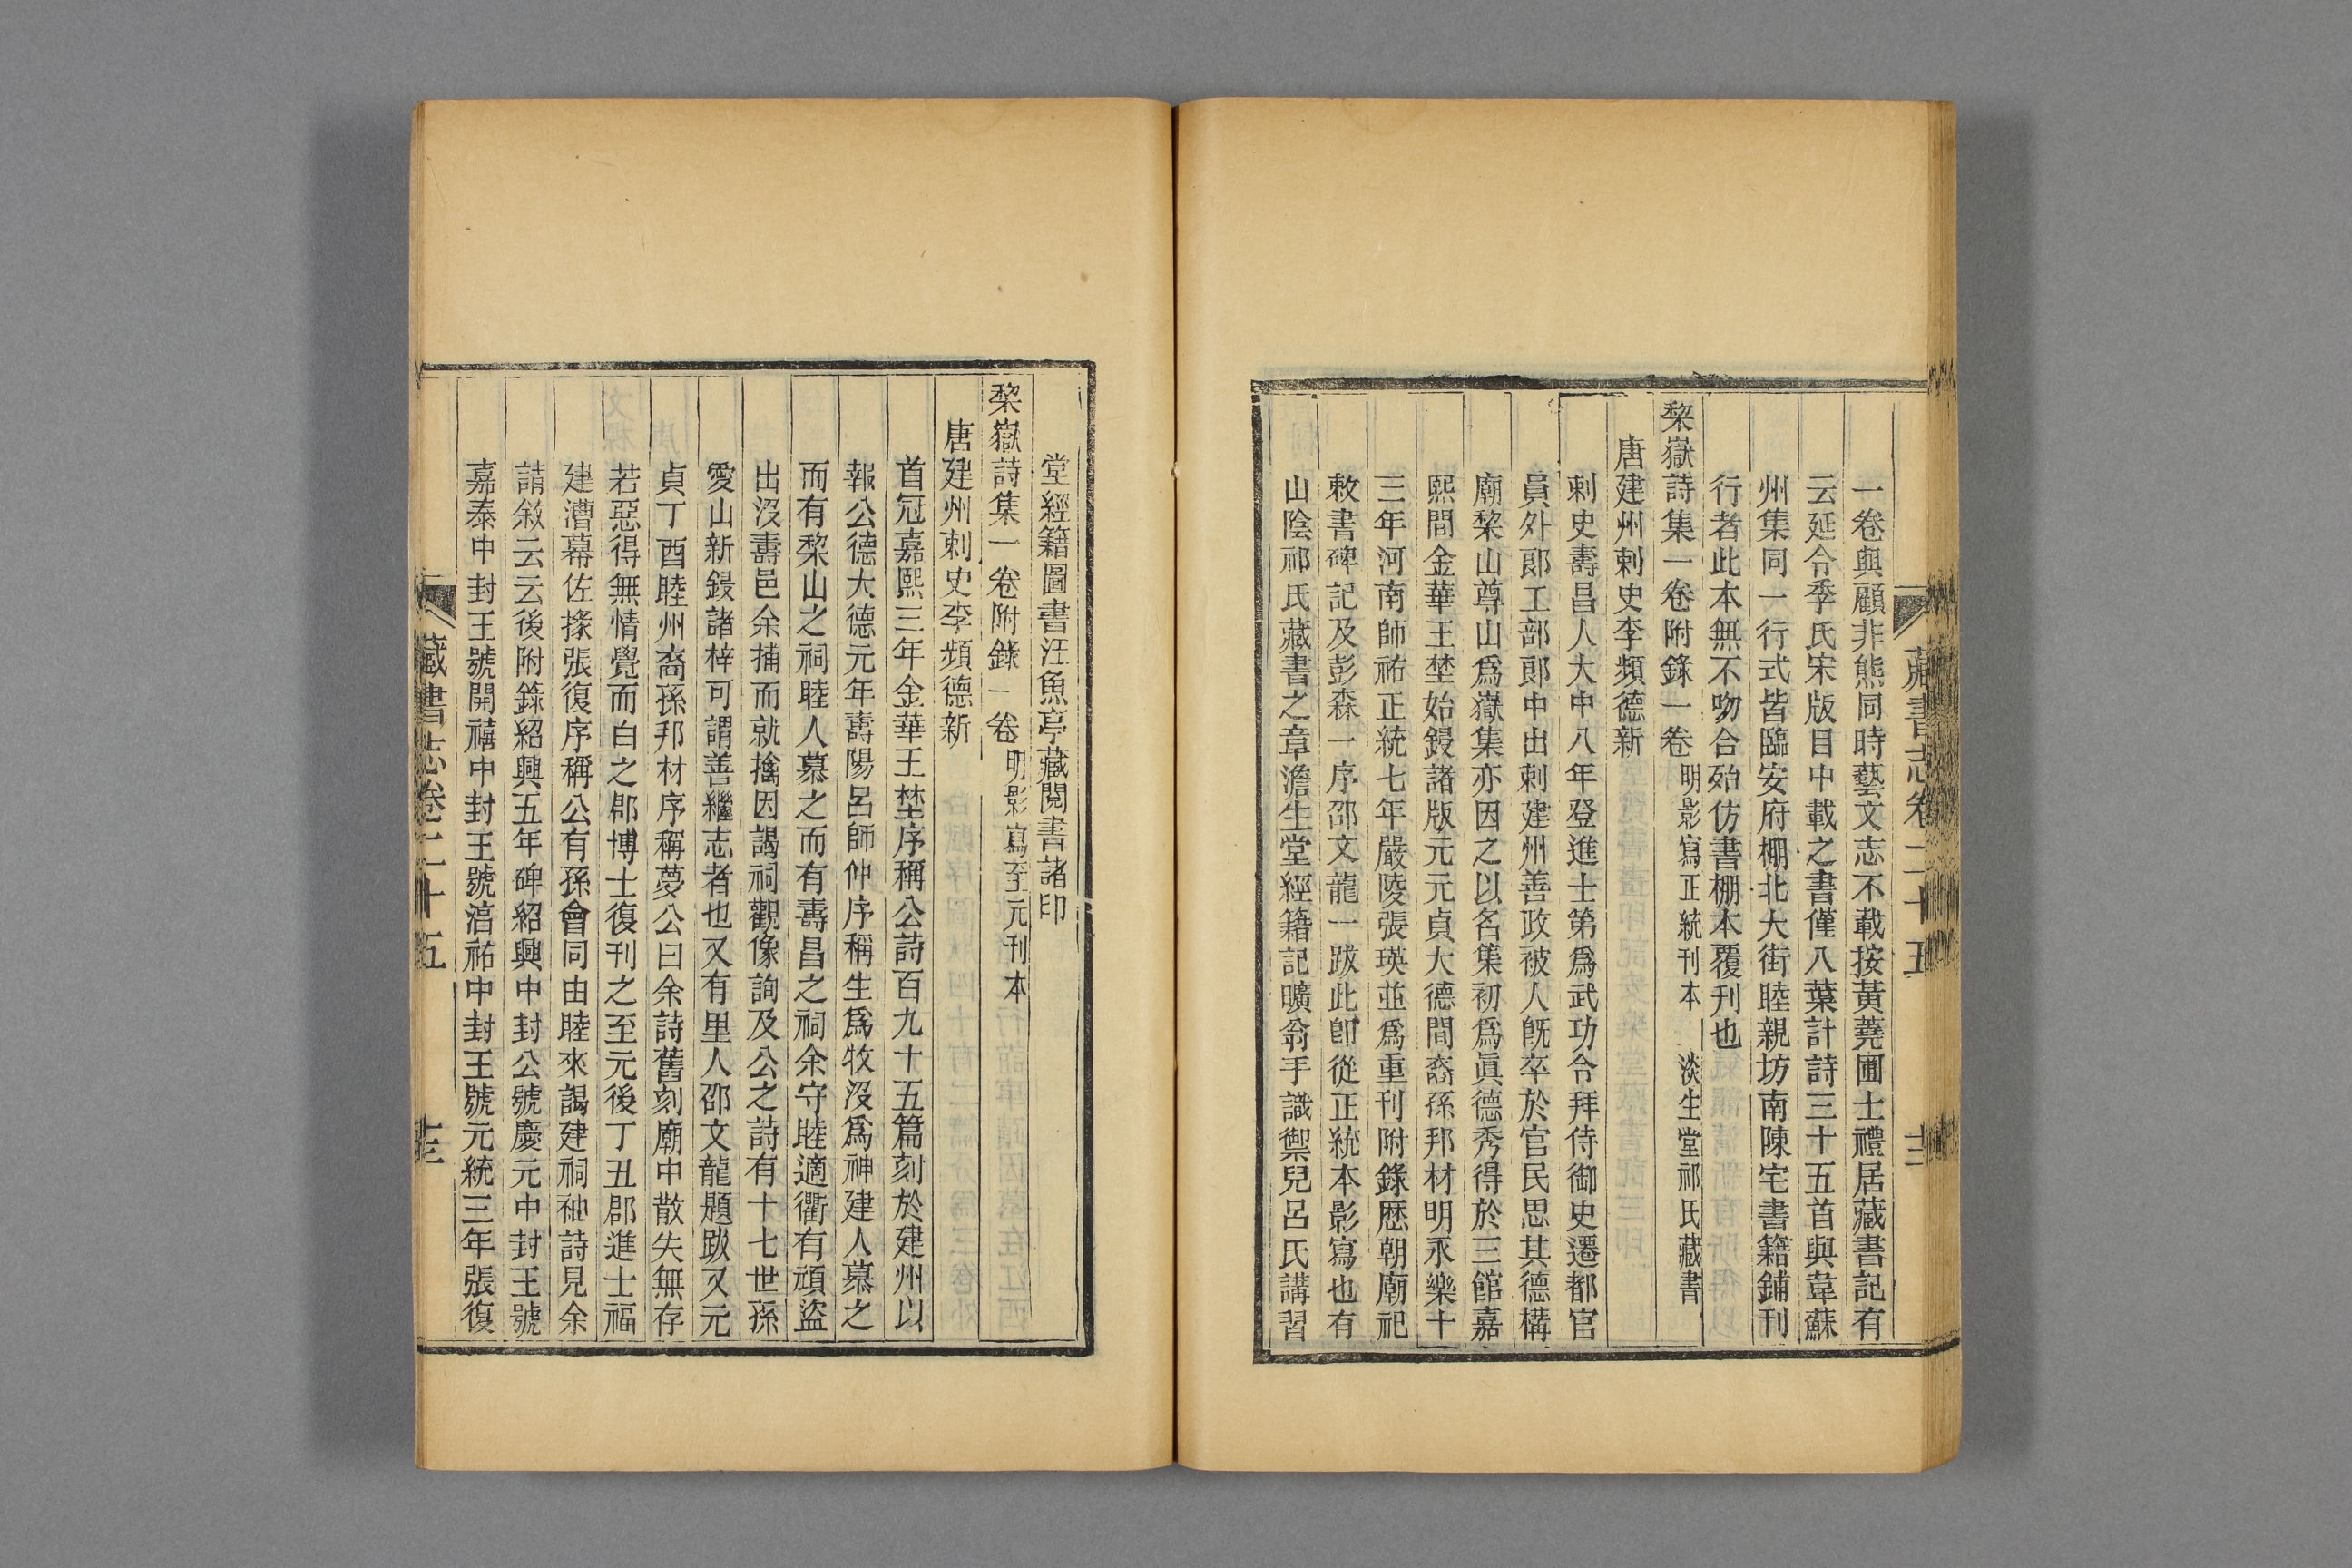 一卷與顧非熊同時藝文志不載按黃蕘圃士禮居藏書記有
云延令季氏宋版目中載之書僅八葉計詩三十五首與韋蘇
州集同一行式皆臨安府棚北大街睦親坊南陳宅書籍鋪刊
行者此本無不吻合殆仿書棚本覆刊也
棃嶽詩集一卷附錄一卷 明影寫正統刊本 淡生堂祁氏藏書
唐建州刺史李頻德新
刺史壽昌人大中八年登進士第爲武功令拜侍御史遷都官
員外郎工部郎中出刺建州善政被人旣卒於官民思其德構
廟棃山尊山爲嶽集亦因之以名集初爲眞德秀得於三館嘉
熙間金華王埜始鋟諸版元元貞大德間裔孫邦材明永樂十
三年河南師祐正統七年嚴陵張瑛並爲重刊附錄歷朝廟祀
敕書碑記及彭森一序邵文龍一跋此卽從正統本影寫也有
山陰祁氏藏書之章澹生堂經籍記曠翁手識禦兒呂氏講習
藏書志卷二十五 十三
堂經籍圖書汪魚亭藏閱書諸印
棃嶽詩集一卷附錄一卷 明影寫至元刊本
唐建州刺史李頻德新
首冠嘉熙三年金華王埜序稱公詩百九十五篇刻於建州以
報公德大德元年壽陽呂師仲序稱生爲牧沒爲神建人慕之
而有棃山之祠睦人慕之而有壽昌之祠余守睦適衢有頑盜
出沒壽邑余捕而就擒因謁祠觀像詢及公之詩有十七世孫
愛山新鋟諸梓可謂善繼志者也又有里人邵文龍題跋又元
貞丁酉睦州裔孫邦材序稱夢公曰余詩舊刻廟中散失無存
若惡得無情覺而白之郡博士復刊之至元後丁丑郡進士福
建漕幕佐掾張復序稱公有孫會同由睦來謁建祠袖詩見余
請敘云云後附錄紹興五年碑紹興中封公號慶元中封王號
嘉泰中封王號開禧中封王號湻祐中封王號元統三年張復
藏書志卷二十五 十三